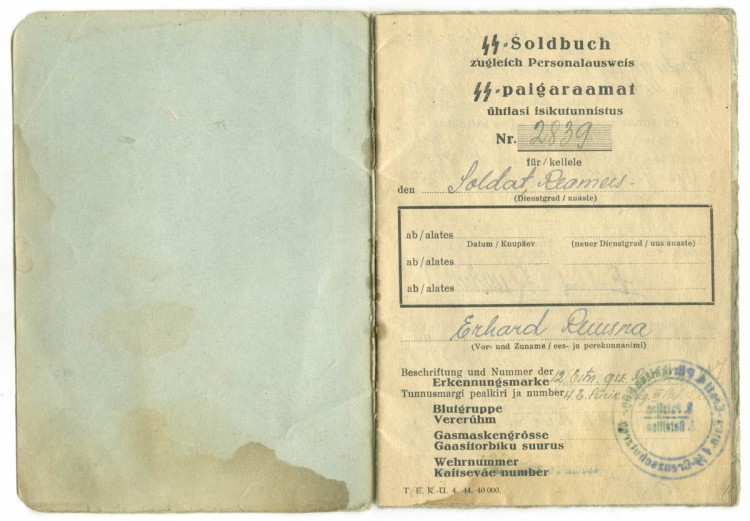 SS-Soldbuch
zugleich Personalausweis
SS-palgaraamat
ühtlasi isikutunnistus
Nr. 2839
für / kellele
den Soldat, Reamees.
(Dienstgrad / auaste)
ab / alates
Datum / Kuupäev (neuer Dienstgrad / uus auaste)
ab / alates
ab / alates
Erhard
(Vor- und Zuname / ees- ja perekonnanimi)
Beschriftung und Nummer der
Erkennungsmarke
Tunnusmärgi pealkiri ja number
Blutgruppe
Vererühm
Gasmaskengrösse
Gaasitorbiku suurus
Wehrnummer
Kaitseväe number
T. E. K.-Ü. 4. 44. 40 000.